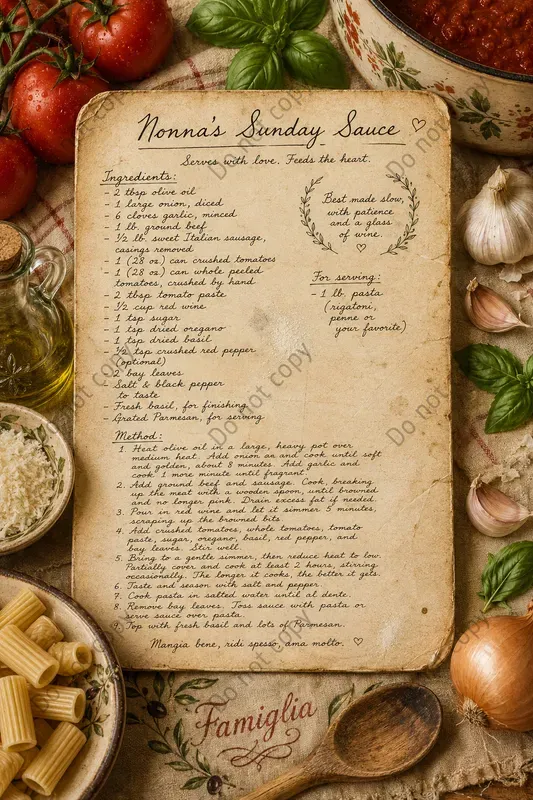 Nonna's Sunday Sauce ♡
Serves with love. Feeds the heart.
Ingredients:
- 2 tbsp olive oil
- 1 large onion, diced
- 6 cloves garlic, minced
- 1 lb. ground beef
- ½ lb. sweet Italian sausage,
casings removed
- 1 (28 oz.) can crushed tomatoes
- 1 (28 oz.) can whole peeled
tomatoes, crushed by hand
- 2 tbsp tomato paste
- ½ cup red wine
- 1 tsp sugar
- 1 tsp dried oregano
- 1 tsp dried basil
- ½ tsp crushed red pepper
(optional)
- 2 bay leaves
- Salt & black pepper
to taste
- Fresh basil, for finishing
- Grated Parmesan, for serving
Best made slow,
with patience
and a glass
of wine.
♡
For serving:
- 1 lb. pasta
(rigatoni,
penne or
your favorite)
Method:
1. Heat olive oil in a large, heavy pot over
medium heat. Add onion an and cook until soft
and golden, about 8 minutes. Add garlic and
cook 1 more minute until fragrant.
2. Add ground beef and sausage. Cook, breaking
up the meat with a wooden spoon, until browned
and no longer pink. Drain excess fat if needed.
3. Pour in red wine and let it simmer 5 minutes,
scraping up the browned bits.
4. Add crushed tomatoes, whole tomatoes, tomato
paste, sugar, oregano, basil, red pepper, and
bay leaves. Stir well.
5. Bring to a gentle simmer, then reduce heat to low.
Partially cover and cook at least 2 hours, stirring
occasionally. The longer it cooks, the better it gets.
6. Taste and season with salt and pepper.
7. Cook pasta in salted water until al dente.
8. Remove bay leaves. Toss sauce with pasta or
serve sauce over pasta.
9. Top with fresh basil and lots of Parmesan.
Mangia bene, ridi spesso, ama molto. ♡
Famiglia
Do not copy
Do not copy
Do not copy
Do not copy
Do not copy
Do not copy
Do not copy